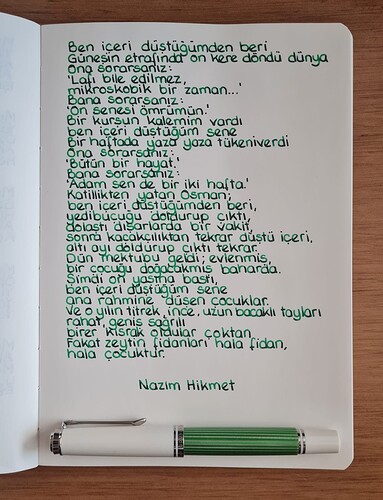 Ben içeri düştüğümden beri
Güneşin etrafında on kere döndü dünya
Ona sorarsanız:
'Lafı bile edilmez,
mikroskobik bir zaman...'
Bana sorarsanız:
'On senesi ömrümün.'
Bir kurşun kalemim vardı
ben içeri düştüğüm sene
Bir haftada yaza yaza tükeniverdi
Ona sorarsanız:
'Bütün bir hayat.'
Bana sorarsanız:
'Adam sen de bir iki hafta.'
Katillikten yatan Osman;
ben içeri düştüğümden beri,
yedibuçuğu doldurup çıktı,
dolaştı dışarlarda bir vakit,
sonra kaçakçılıktan tekrar düştü içeri,
altı ayı doldurup çıktı tekrar.
Dün mektubu geldi; evlenmiş,
bir çocuğu doğacakmış baharda.
Şimdi on yaşına bastı,
ben içeri düştüğüm sene
ana rahmine düşen çocuklar.
Ve o yılın titrek, ince, uzun bacaklı tayları
rahat, geniş sağrılı
birer kısrak oldular çoktan.
Fakat zeytin fidanları hala fidan,
hala çocuktur.
Nazim Hikmet